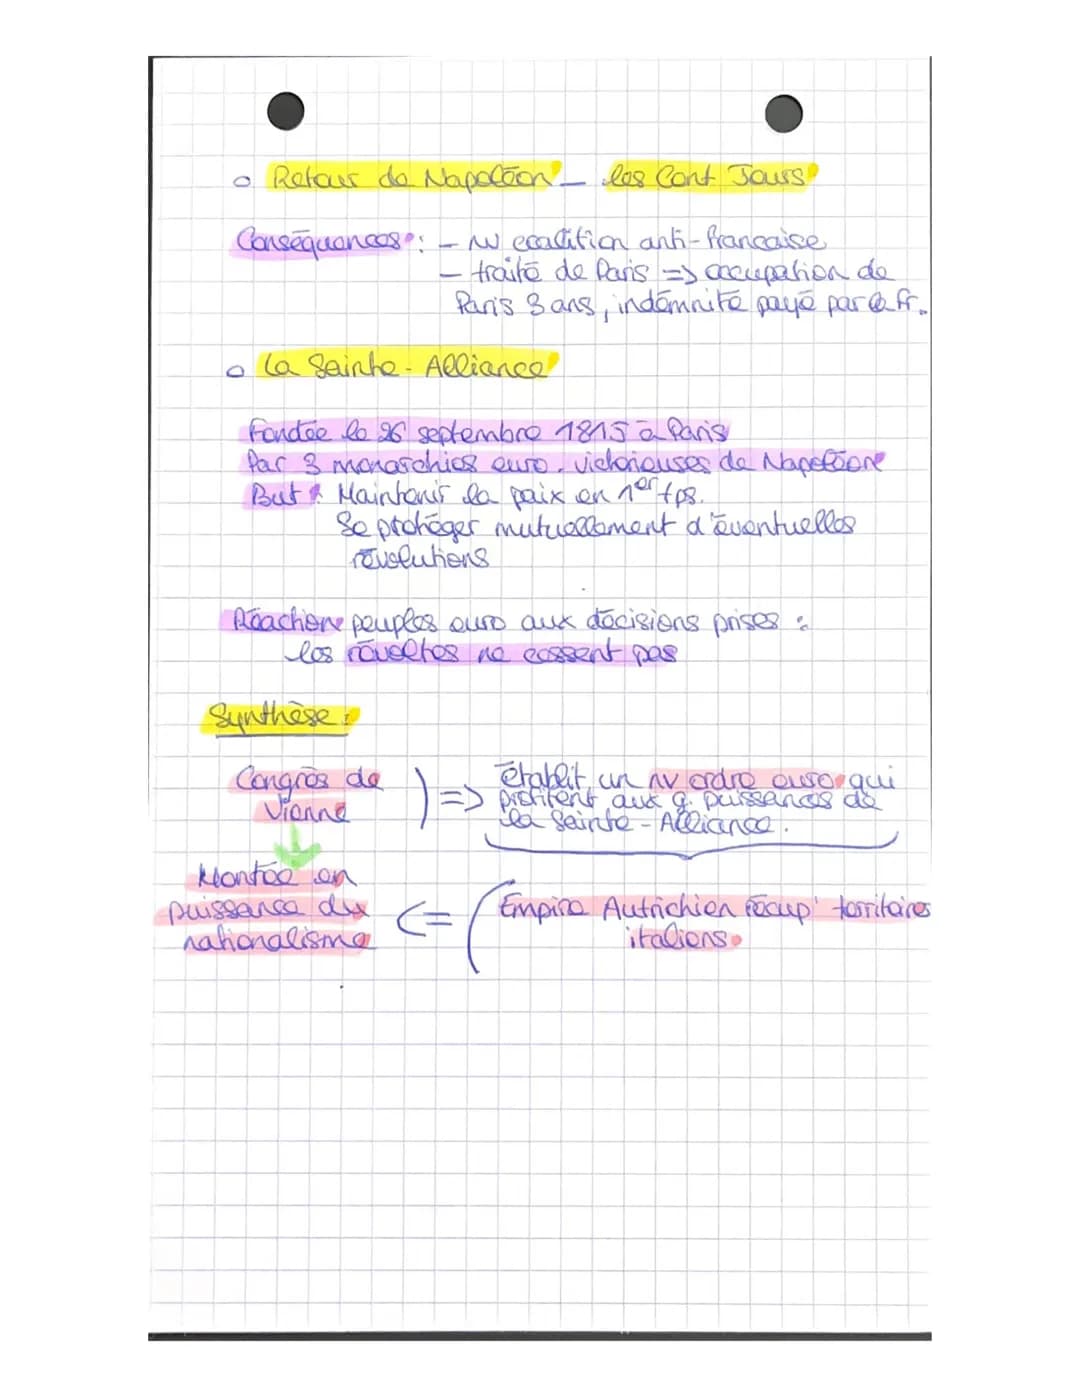 o Retour de Napoléon - les Cent Jours
Conséquences : - nv coalition anti-française
- traité de Paris => occupation de
Paris 3 ans, indémnité payé par la fr.
o La Sainte-Alliance
Fondée le 26 septembre 1815 à Paris
Par 3 monarchies euro. victorieuses de Napoléon
But : Maintenir la paix en 1er tps.
Se protéger mutuellement d'éventuelles
révolutions
Réaction peuples euro aux décisions prises :
les révoltes ne cessent pas
Synthèse :
Congrès de Vienne ) => établit un nv ordre euro qui
profitent aux g. puissances de
la Sainte-Alliance.
Montée en
puissance du
nationalisme <= ( Empire Autrichien récup' territoires
italiens